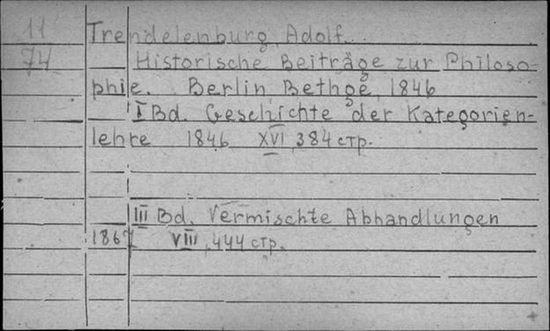 11 Trendelenburg, Adolf.
74 Historische Beiträge zur Philoso-
phie. Berlin Bethge, 1846
I Bd. Geschichte der Kategorien-
lehre 1846 XVI, 384 стр.
III Bd. Vermischte Abhandlungen
1867 VIII, 444 стр.